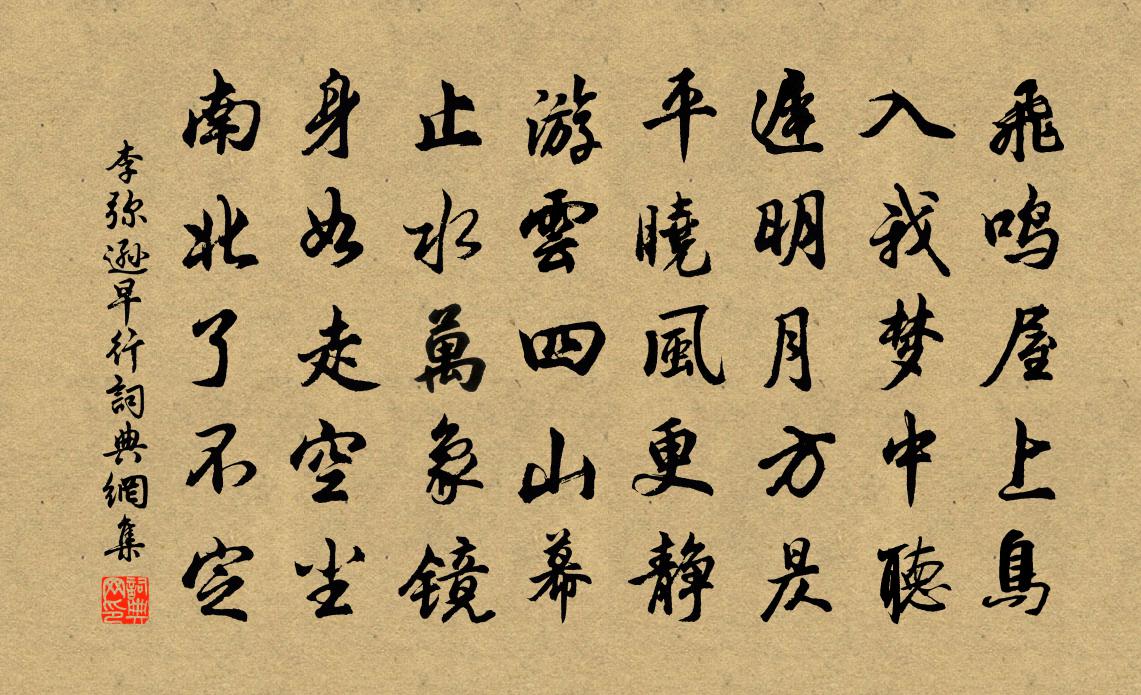 飛鸣屋上鳥
入我梦中聽
遲明月方昃
平曉風更静
游雲四山幕
止水萬象镜
身如走空尘
南北了不定
李弥遜早行詞典網集
詞典网印